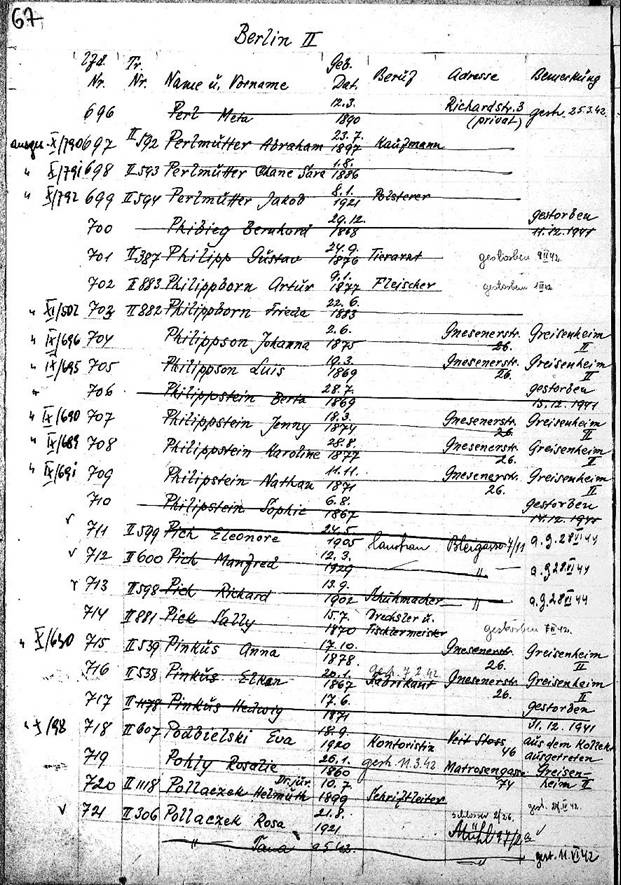 67
Berlin II
Lfd. Nr. Tr. Nr. Name u. Vorname Geb. Dat. Beruf Adresse Bemerkung
696 Perl Meta 12.3. 1890 Richardstr. 3 (privat) gest. 25.3.42.
X/790 697 II 592 Perlmutter Abraham 23.7. 1897 Kaufmann
" X/791 698 II 593 Perlmutter Chane Sara 1.8. 1886
" X/792 699 II 594 Perlmutter Jakob 8.1. 1921 Polsterer
700 Phibieg Bernhard 29.12. 1868 gestorben 11.12.1941
701 II 387 Philipp Gustav 24.9. 1876 Tierarzt gestorben
702 II 883 Philippborn Artur 9.1. 1877 Fleischer gestorben
" XI/502 703 II 882 Philippborn Frieda 22.6. 1883
" IX/696 704 Philippson Johanna 2.6. 1875 Gnesenerstr. 26. Greisenheim II
" IX/695 705 Philippson Luis 19.3. 1869 Gnesenerstr. 26. Greisenheim II
" 706 Philippstein Berta 28.7. 1869 gestorben 15.12.1941
" IX/690 707 Philippstein Jenny 18.3. 1874 Gnesenerstr. 26. Greisenheim II
" IX/689 708 Philipstein Karoline 28.8. 1877 Gnesenerstr. 26. Greisenheim II
" IX/691 709 Philipstein Nathan 11.11. 1871 Gnesenerstr. 26. Greisenheim II
710 Philipstein Sophie 6.8. 1867 gestorben 14.12.1941
711 II 599 Pich Eleonore 24.5. 1905 Hausfrau 7/11
712 II 600 Pich Manfred 12.3. 1929 "
713 II 598 Pich Rickard 13.9. 1902 Schuhmacher "
714 II 881 Pick Sally 15.7. 1870 Drechsler u. Tischlermeister gestorben
" X/640 715 II 539 Pinkus Anna 17.10. 1878. Gnesenerstr. 26. Greisenheim II
716 II 538 Pinkus 20.1. 1867 gest. 7.2.42 Fabrikant Gnesenerstr. 26. Greisenheim II
717 II 1178 Pinkus Hedwig 17.6. 1871 gestorben 31.12.1941
718 II 607 Podbielski Eva 18.9. 1920 Kontoristin Veit Stoss 46 aus dem Kollekt. ausgetreten
719 Pohly Rosalie 26.1. 1860 gest. 11.3.42 Matrosengasse 74 Greisenheim II
720 II 1118 Pollaczek Helmuth Dr. jur. 10.7. 1899 Schriftleiter gest.
721 II 306 Pollaczek Rosa 21.8. 1921
" Tana gest. 11.VI 42